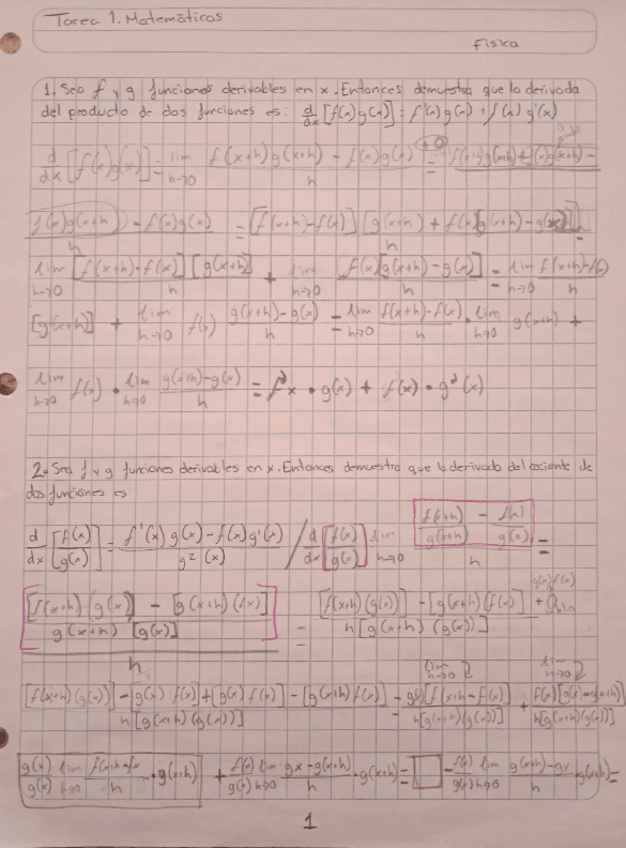 Tarea 1. Matemáticas
Física
1. Sea f y g funciones derivables en x. Entonces demuestra que la derivada
del producto de dos funciones es: d/dx [f(x)g(x)] = f'(x)g(x) + f(x)g'(x)
d/dx [f(x)g(x)] = lim h→0 f(x+h)g(x+h) - f(x)g(x) / h = f(x+h)g(x+h) + f(x)g(x+h) -
f(x)g(x+h) - f(x)g(x) / h = [f(x+h)-f(x)] [g(x+h) + f(x)[g(x+h)-g(x)] / h =
lim h→0 [f(x+h)-f(x)] [g(x+h)] / h + lim h→0 f(x)[g(x+h)-g(x)] / h = lim h→0 f(x+h)-f(x) / h
[g(x+h)] + lim h→0 f(x) g(x+h)-g(x) / h = lim h→0 f(x+h)-f(x) / h · lim h→0 g(x+h) +
lim h→0 f(x) · lim h→0 g(x+h)-g(x) / h = f'x · g(x) + f(x) · g'(x)
2. Sea f y g funciones derivables en x. Entonces demuestra que la derivada del cociente de
dos funciones es
d/dx [f(x)/g(x)] = f'(x)g(x)-f(x)g'(x) / g²(x) / d/dx [f(x)/g(x)] lim h→0 f(x+h)/g(x+h) - f(x)/g(x) / h =
[f(x+h)(g(x)] - [g(x+h)(fx)] / g(x+h) [g(x)] / h = [f(x+h)(g(x))] - [g(x+h)(f(x)] + 0 / h[g(x+h)(g(x))]
[f(x+h)(g(x))] - [g(x) f(x)] + [g(x) f(x)] - [g(x+h) f(x)] / h[g(x+h)(g(x))] = g(x)[f(x+h-f(x)] / h[g(x+h)(g(x))] + f(x)[g(x)-g(x+h)] / h[g(x+h)(g(x))]
g(x)/g(x) lim h→0 f(x+h-fx / h · g(x+h) + f(x)/g(x) lim h→0 gx-g(x+h) / h · g(x+h) = □ - f(x)/g(x) lim h→0 g(x+h)-gx / h · g(x+h) =
1